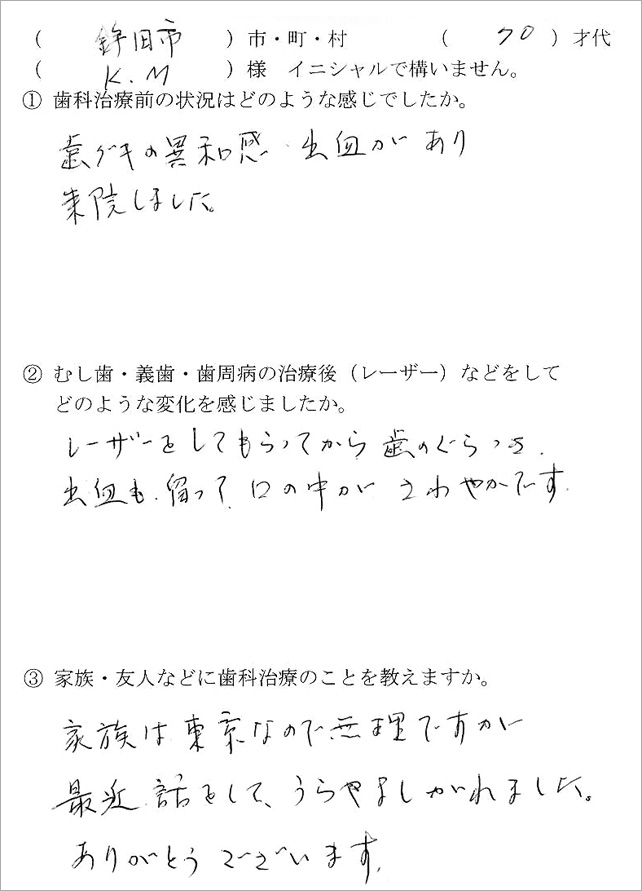 ( 鉾田市 ) 市・町・村 ( 70 ) 才代
( K.M ) 様 イニシャルで構いません。
① 歯科治療前の状況はどのような感じでしたか。
歯グキの異和感、出血があり
来院しました。
② むし歯・義歯・歯周病の治療後（レーザー）などをして
どのような変化を感じましたか。
レーザーをしてもらってから歯のぐらつき、
出血も、留って、口の中がさわやかです。
③ 家族・友人などに歯科治療のことを教えますか。
家族は東京なので無理ですが
最近話をして、うらやましがれました。
ありがとうございます。